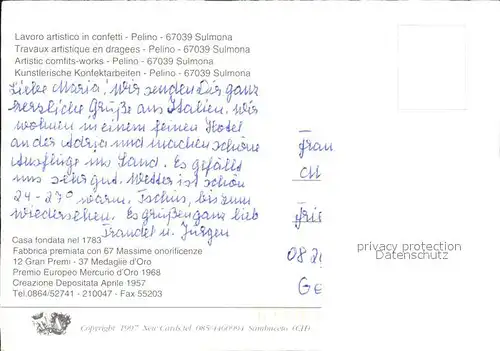 Lavoro artistico in confetti - Pelino - 67039 Sulmona
Travaux artistique en dragees - Pelino - 67039 Sulmona
Artistic comfits-works - Pelino - 67039 Sulmona
Kunstlerische Konfektarbeiten - Pelino - 67039 Sulmona
Liebe Maria! Wir senden Dir ganz
herzliche Grüße aus Italien. Wir
wohnen in einem feinen Hotel
an der Adria und machen schöne
Ausflüge ins Land. Es gefällt
uns sehr gut. Wetter ist schön
24-27° warm. Tschüs, bis zum
wiedersehen. Es grüßen ganz lieb
Traudel u. Jürgen
Frau
privacy protection
Datenschutz
Casa fondata nel 1783
Fabbrica premiata con 67 Massime onorificenze
12 Gran Premi - 37 Medaglie d'Oro
Premio Europeo Mercurio d'Oro 1968
Creazione Depositata Aprile 1957
Tel.0864/52741 - 210047 - Fax 55203
Copyright 1997 New Cards.tel. Sambuceto (CH)